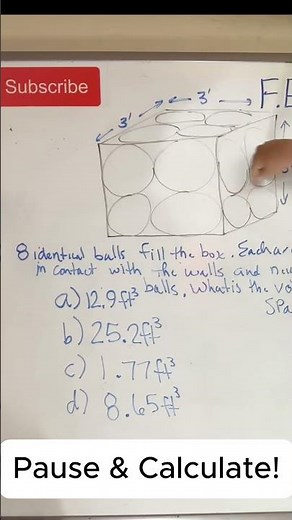 Subscribe
3' 3' F.E
8 identical balls fill the box. Each are
in contact with the walls and
balls. What is the vo
a) 12.9ft³
b) 25.2ft³
c) 1.77ft³
d) 8.65ft³
Pause & Calculate!